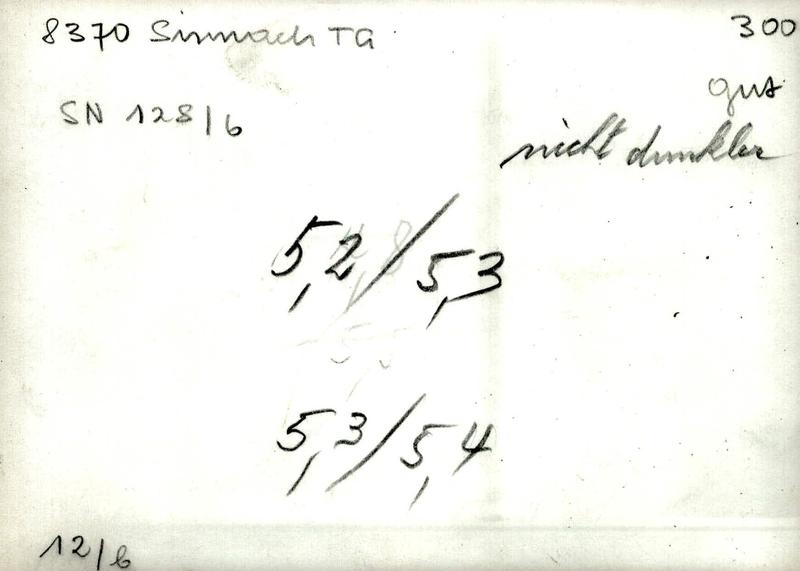 8370 Sirnach TG
300
gut
SN 128/6
nicht dunkler
5,2/5,3
5,3/5,4
12/6